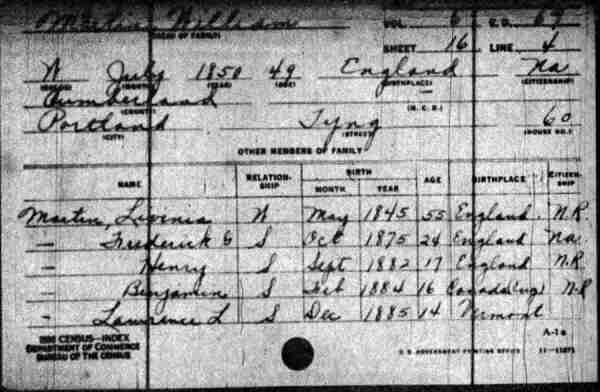 Martin, William
(HEAD OF FAMILY)
VOL. 6 E.D. 69
SHEET 16 LINE 4
W July 1850 49 England Na
(COLOR) (MONTH) (YEAR) (AGE) (BIRTHPLACE) (CITIZENSHIP)
Cumberland
(COUNTY) (M. C. D.)
Portland Tyng 60
(CITY) (STREET) (HOUSE NO.)
OTHER MEMBERS OF FAMILY
NAME RELATION-SHIP BIRTH MONTH YEAR AGE BIRTHPLACE CITIZEN-SHIP
Martin, Lavinia W May 1845 55 England N.R.
— Frederick G S Oct 1875 24 England Na.
— Henry S Sept 1882 17 England N.R
— Benjamin S Feb 1884 16 Canada (Eng) N.R
— Lawrence L S Dec 1885 14 Vermont
1900 CENSUS—INDEX
DEPARTMENT OF COMMERCE
BUREAU OF THE CENSUS
A-1a
U. S. GOVERNMENT PRINTING OFFICE